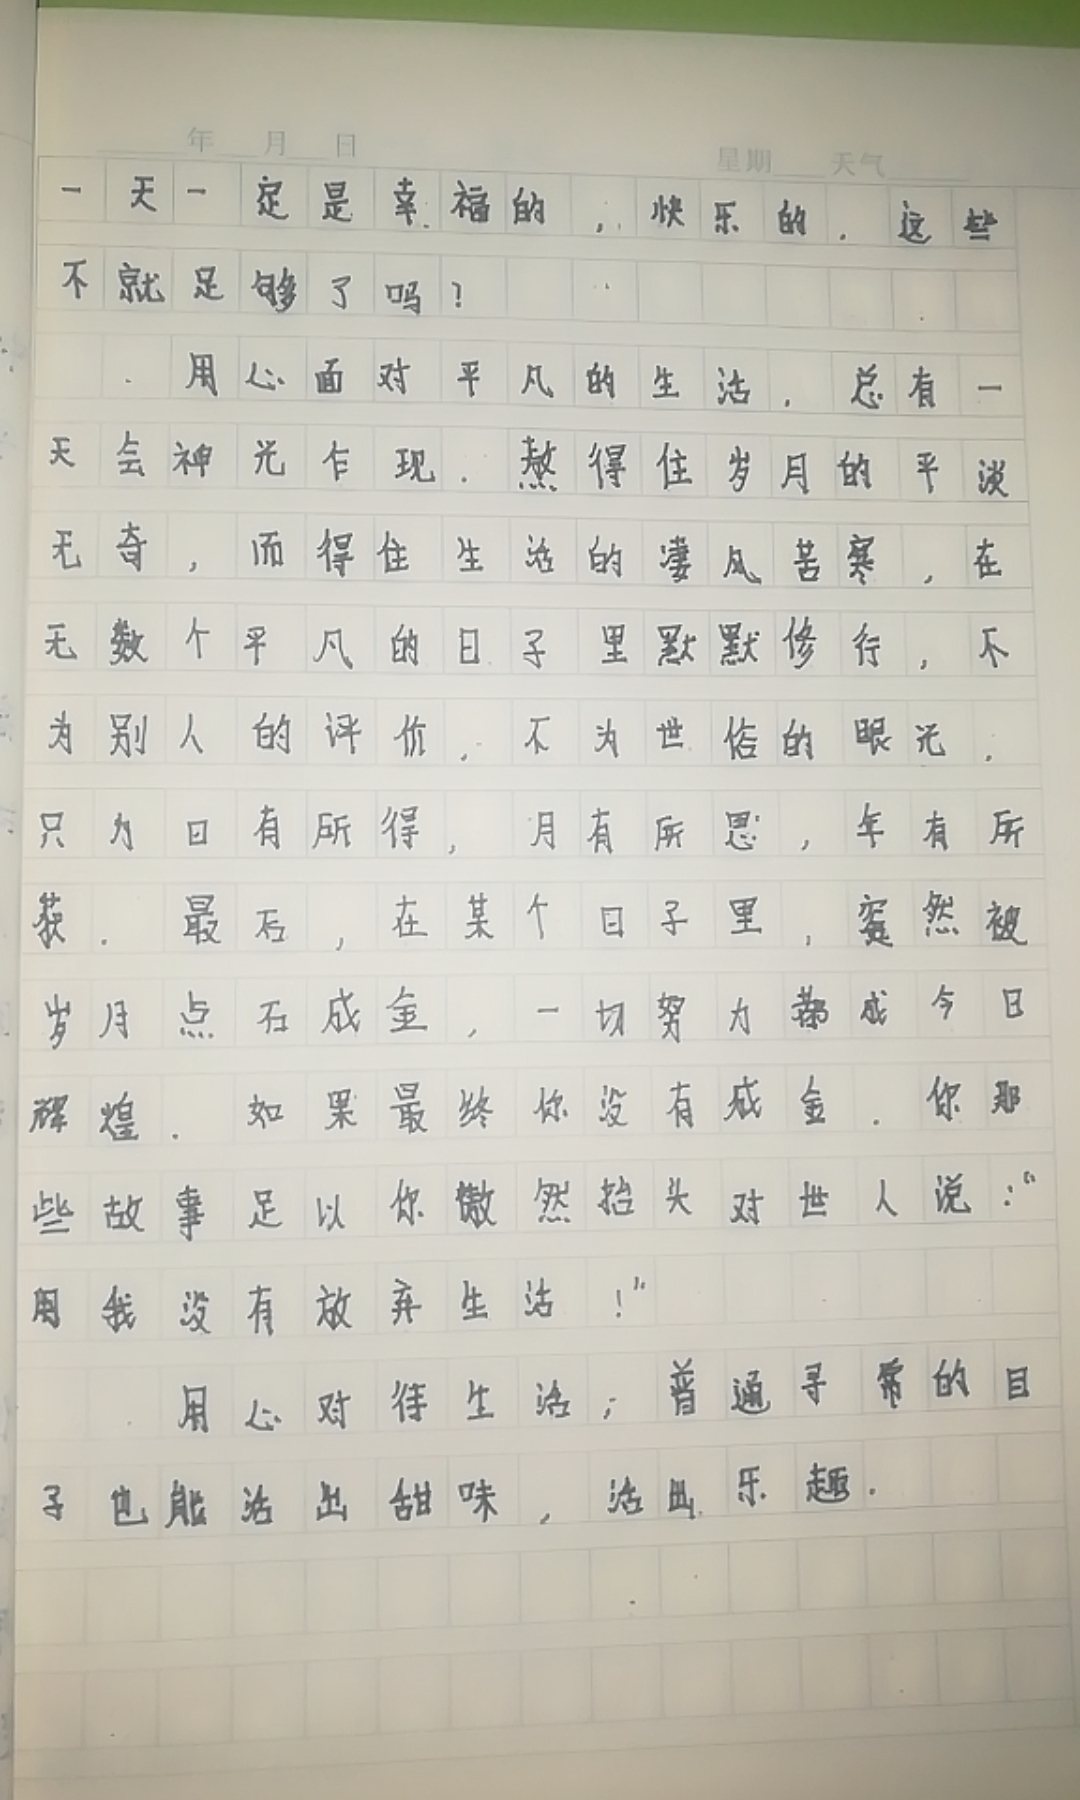 年 月 日 星期 天气
一天一定是幸福的,快乐的.这些
不就足够了吗?
用心面对平凡的生活,总有一
天会神光乍现.熬得住岁月的平淡
无奇,而得住生活的凄风苦寒,在
无数个平凡的日子里默默修行,不
为别人的评价,不为世俗的眼光.
只为日有所得,月有所思,年有所
获.最后,在某个日子里,突然被
岁月点石成金,一切努力都成今日
辉煌.如果最终你没有成金.你那
些故事足以你傲然抬头对世人说:“
用我没有放弃生活!”
用心对待生活;普通寻常的日
子也能活出甜味,活出乐趣.